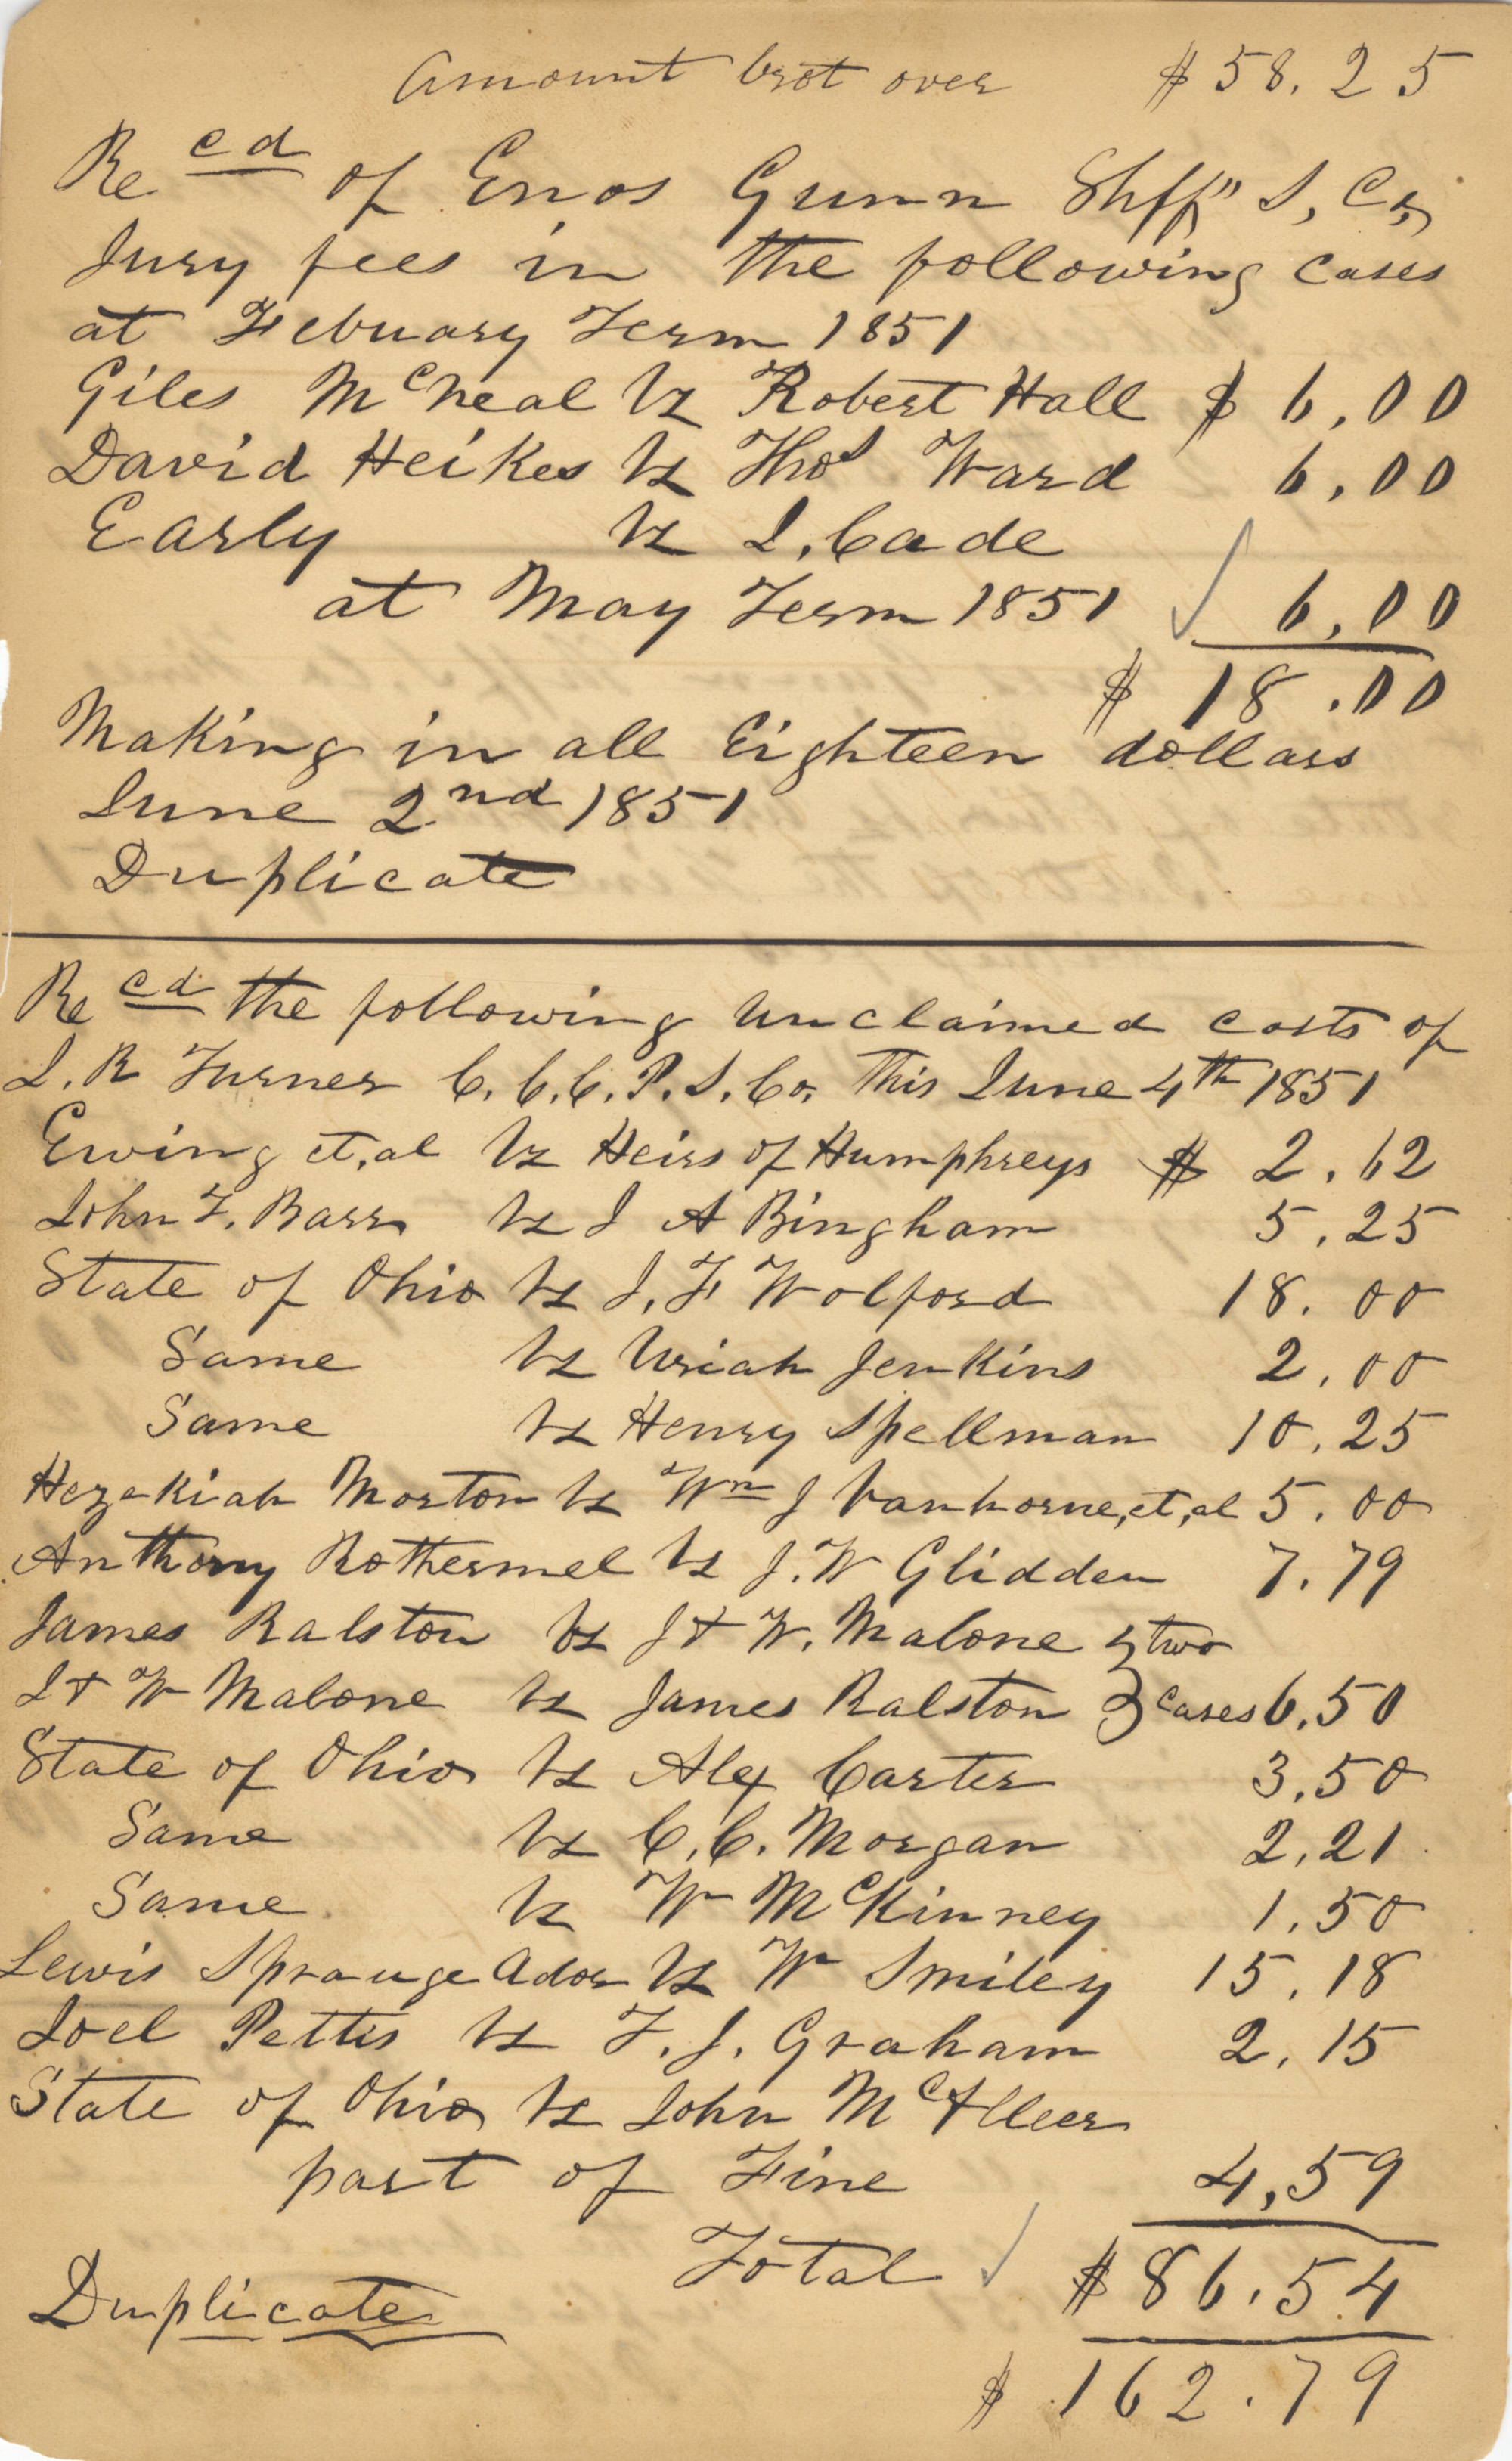 Amount brot over $58.25
Recd of Enos Gunn Shff" S, Co,
Jury fees in the following cases
at Febuary Term 1851
Giles McNeal Vs Robert Hall $ 6,00
David Heikes Vs Thos Ward 6,00
Early Vs I, Cade
at May Term 1851 ✓ 6,00
$ 18.00
Making in all Eighteen dollars
June 2nd 1851
Duplicate
Recd the following unclaimed costs of
J. R Turner C.C.C.P.S.Co. This June 4th 1851
Ewing et,al Vs Heirs of Humphreys $ 2.62
John F. Barr Vs J A Bingham 5,25
State of Ohio Vs J, F Wolford 18.00
Same Vs Uriah Jenkins 2,00
Same Vs Henry Spellman 10,25
Hezekiah Morton Vs Wm J Vanhorne,et,al 5.00
Anthony Rothermel Vs J.W Glidden 7.79
James Ralston Vs J + W. Malone } two
J + W Malone Vs James Ralston } cases 6,50
State of Ohio Vs Alex Carter 3,50
Same Vs C,C. Morgan 2,21
Same Vs Wm McKinney 1,50
Lewis Sprauge Ador Vs Wm Smiley 15,18
Joel Pettis Vs F. J. Graham 2,15
State of Ohio Vs John McAlleer
part of Fine 4,59
Total ✓ $86.54
Duplicate
$ 162.79